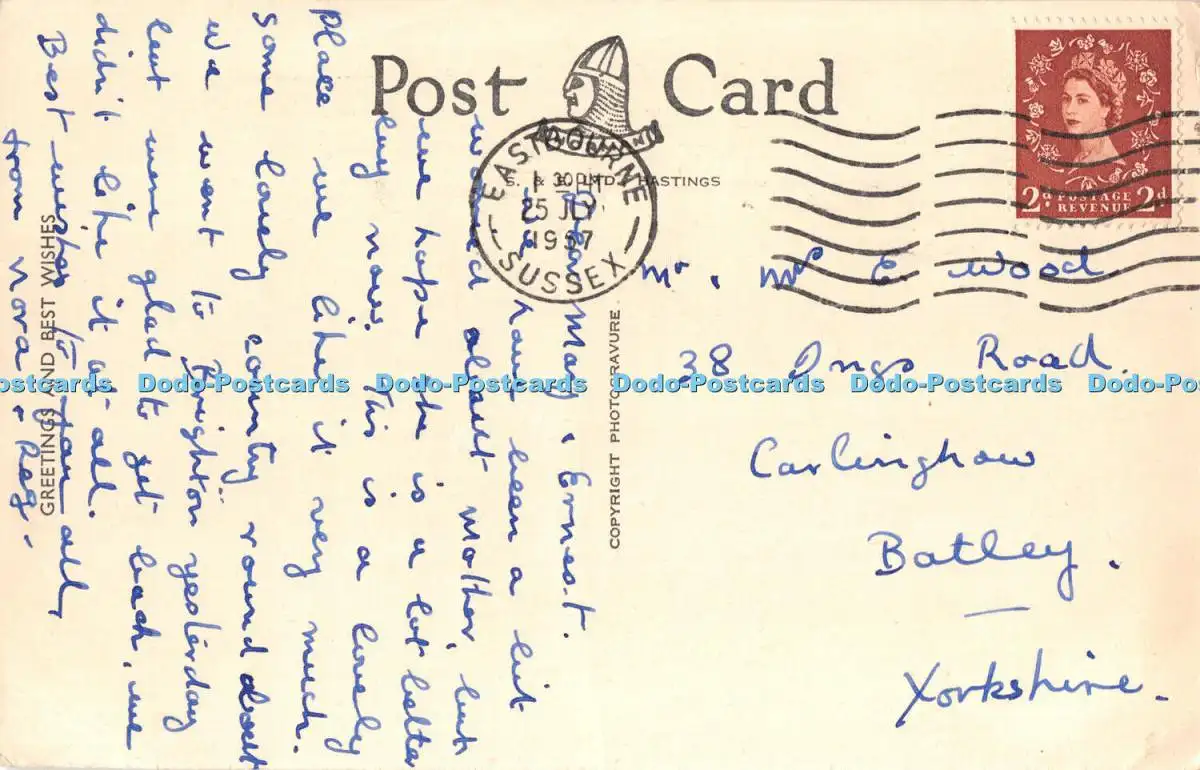 Post Card
S. & E. LTD. HASTINGS
EASTBOURNE
SUSSEX
25 JLY
1957
2d. POSTAGE REVENUE 2d
Mr. Mrs E. Wood
38 Ings Road.
Carlinghow
Batley.
Yorkshire.
COPYRIGHT PHOTOGRAVURE
GREETINGS AND BEST WISHES
Dear May, Ernest.
We have been a bit
worried about mother, but
we hope she is a lot better
by now. This is a lovely
place we like it very much.
some lovely country round about
we went to Brighton yesterday
but were glad to get back, we
didn't like it at all.
Best wishes to you all,
from Nora & Reg.
Dodo-Postcards Dodo-Postcards Dodo-Postcards Dodo-Postcards Dodo-Postcards